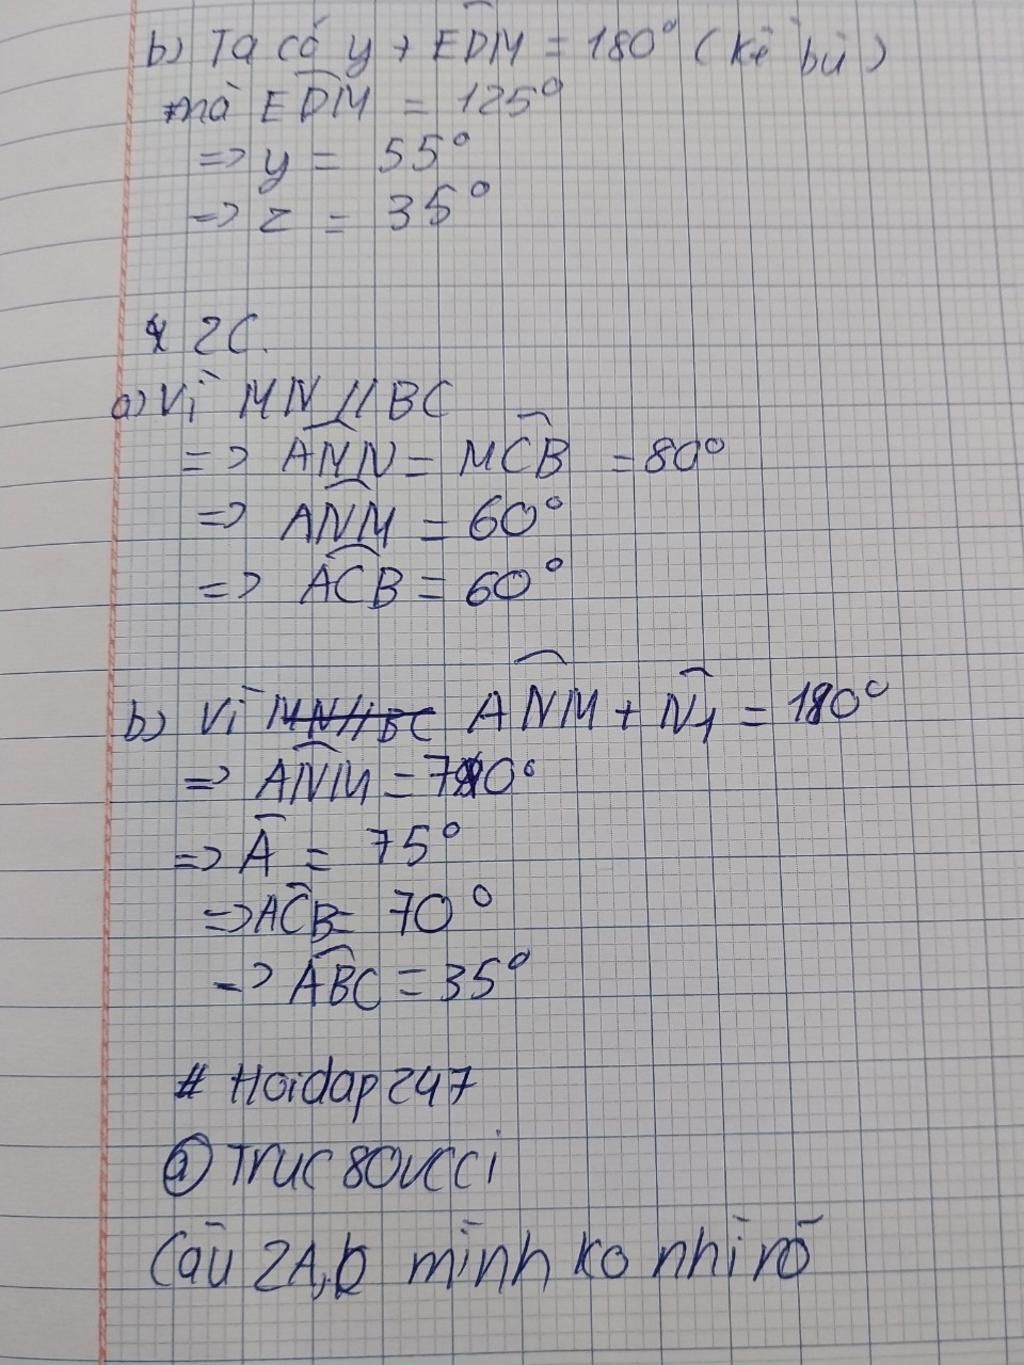 b) Ta có y + EDM = 180° (kề bù)
mà EDM = 125°
=> y = 55°
=> z = 35°
2C.
a) Vì MN // BC
=> AMN = MCB = 80°
=> ANM = 60°
=> ACB = 60°
b) Vì MN//BC ANM + N1 = 180°
=> ANM = 70°
=> A = 75°
=> ACB = 70°
=> ABC = 35°
# Hoidap247
@ Truc80ucci
Câu 2A,b mình ko nhì rõ